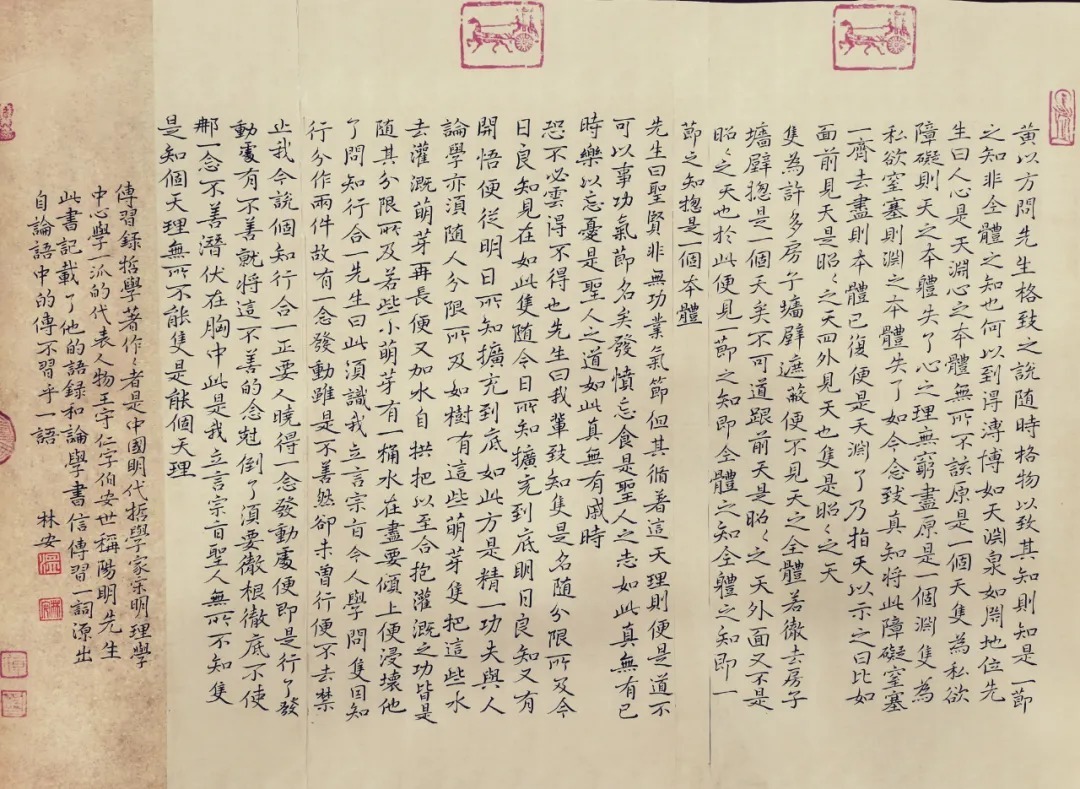 黃以方問先生格致之說随時格物以致其知則知是一節
之知非全體之知也何以到得溥博如天淵泉如淵地位先
生曰人心是天淵心之本體無所不該原是一個天隻為私欲
障礙則天之本體失了心之理無窮盡原是一個淵隻為
私欲窒塞則淵之本體失了如今念致真知將此障礙窒塞
一齊去盡則本體已復便是天淵了乃指天以示之曰比如
面前見天是昭々之天四外見天也隻是昭々之天
隻為許多房子墻壁遮蔽便不見天之全體若徹去房子
墻壁揔是一個天矣不可道跟前天是昭々之天外面又不是
昭々之天也於此便見一節之知即全體之知全體之知即一
節之知揔是一個本體
先生曰聖賢非無功業氣節但其循著這天理則便是道不
可以事功氣節名矣發憤忘食是聖人之志如此真無有已
時樂以忘憂是聖人之道如此真無有戚時
恐不必雲得不得也先生曰我輩致知隻是名随分限所及今
日良知見在如此隻随今日所知擴充到底明日良知又有
開悟便從明日所知擴充到底如此方是精一功夫與人
論學亦須随人分限所及如樹有這些萌芽隻把這些水
去灌溉萌芽再長便又加水自拱把以至合抱灌溉之功皆是
随其分限所及若些小萌芽有一桶水在盡要傾上便浸壞他
了問知行合一先生曰此須識我立言宗旨今人學問隻因知
行分作兩件故有一念發動雖是不善然卻未曾行便不去禁
止我今說個知行合一正要人曉得一念發動處便即是行了發
動處有不善就將這不善的念尅倒了須要徹根徹底不使
那一念不善潛伏在胸中此是我立言宗旨聖人無所不知隻
是知個天理無所不能隻是能個天理
傳習錄哲學著作々者是中國明代哲學家宗明理學
中心學一派的代表人物王守仁字伯安世稱陽明先生
此書記載了他的語録和論學書信傳習一詞源出
自論語中的傳不習乎一語
林安